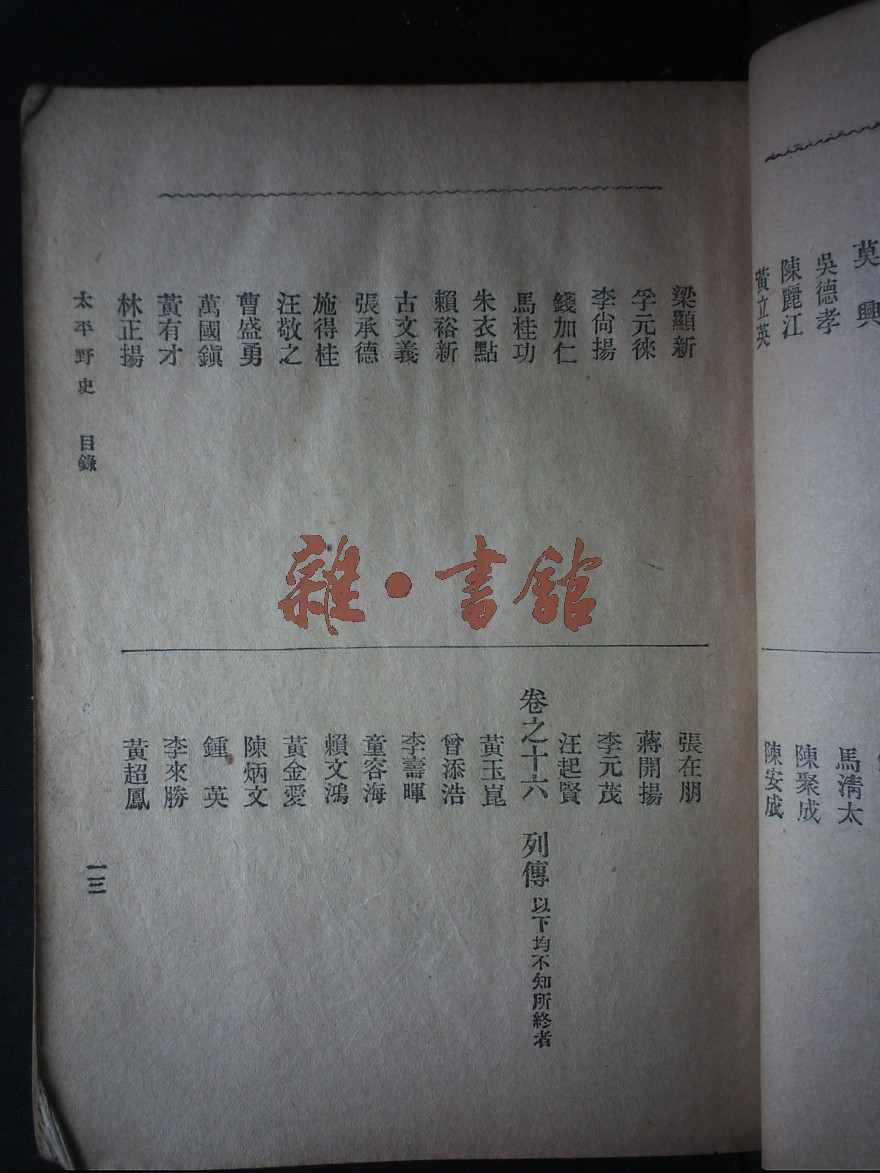 莫興
吳德孝
陳麗江
黃立英
馬淸太
陳聚成
陳安成
梁顯新
孚元徠
李尙揚
錢加仁
馬桂功
朱衣點
賴裕新
古文義
張承德
施得桂
汪敬之
曹盛勇
萬國鎭
黃有才
林正揚
張在朋
蔣開揚
李元茂
汪起賢
卷之十六 列傳 以下均不知所終者
黃玉崑
曾添浩
李壽暉
童容海
賴文鴻
黃金愛
陳炳文
鍾英
李來勝
黃超鳳
太平野史 目錄
一三
雜·書館